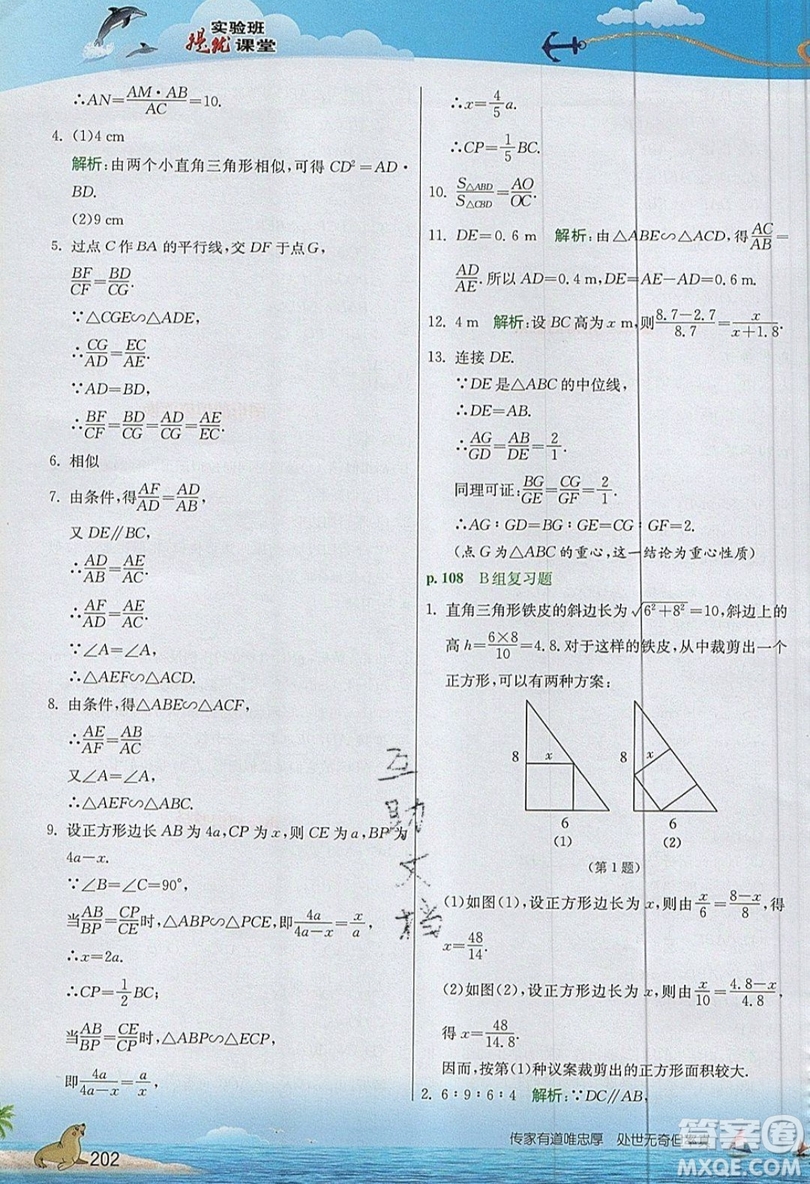 实验班
提优课堂
∴AN=\frac{AM·AB}{AC}=10.
4. (1)4 cm
解析:由两个小直角三角形相似,可得 CD²=AD·
BD.
(2)9 cm
5. 过点 C 作 BA 的平行线,交 DF 于点 G,
\frac{BF}{CF}=\frac{BD}{CG}.
∵△CGE∽△ADE,
∴\frac{CG}{AD}=\frac{EC}{AE}.
∵AD=BD,
∴\frac{BF}{CF}=\frac{BD}{CG}=\frac{AD}{CG}=\frac{AE}{EC}.
6. 相似
7. 由条件,得\frac{AF}{AD}=\frac{AD}{AB},
又 DE∥BC,
∴\frac{AD}{AB}=\frac{AE}{AC}.
∴\frac{AF}{AD}=\frac{AE}{AC}.
∵∠A=∠A,
∴△AEF∽△ACD.
8. 由条件,得△ABE∽△ACF,
∴\frac{AE}{AF}=\frac{AB}{AC}
又∠A=∠A,
∴△AEF∽△ABC.
9. 设正方形边长 AB 为 4a,CP 为 x,则 CE 为 a,BP 为
4a−x.
∵∠B=∠C=90°,
当\frac{AB}{BP}=\frac{CP}{CE}时,△ABP∽△PCE,即\frac{4a}{4a−x}=\frac{x}{a},
∴x=2a.
∴CP=\frac{1}{2}BC;
当\frac{AB}{BP}=\frac{CE}{CP}时,△ABP∽△ECP,
即\frac{4a}{4a−x}=\frac{a}{x},
∴x=\frac{4}{5}a.
∴CP=\frac{1}{5}BC.
10. \frac{S△ABD}{S△CBD}=\frac{AO}{OC}.
11. DE=0.6 m 解析:由△ABE∽△ACD,得\frac{AC}{AB}=
\frac{AD}{AE}.所以 AD=0.4 m,DE=AE−AD=0.6 m.
12. 4 m 解析:设 BC 高为 x m,则\frac{8.7−2.7}{8.7}=\frac{x}{x+1.8}.
13. 连接 DE.
∵DE 是△ABC 的中位线,
∴DE=AB.
∴\frac{AG}{GD}=\frac{AB}{DE}=\frac{2}{1}.
同理可证:\frac{BG}{GE}=\frac{CG}{GF}=\frac{2}{1}.
∴AG:GD=BG:GE=CG:GF=2.
(点 G 为△ABC 的重心,这一结论为重心性质)
p.108 B组复习题
1. 直角三角形铁皮的斜边长为\sqrt{6²+8²}=10,斜边上的
高 h=\frac{6×8}{10}=4.8.对于这样的铁皮,从中裁剪出一个
正方形,可以有两种方案:
8 x 8 x
6 6
(1) (2)
(第 1 题)
(1)如图(1),设正方形边长为 x,则由\frac{x}{6}=\frac{8−x}{8},得
x=\frac{48}{14}.
(2)如图(2),设正方形边长为 x,则由\frac{x}{10}=\frac{4.8−x}{4.8},
得 x=\frac{48}{14.8}.
因而,按第(1)种议案裁剪出的正方形面积较大.
2. 6:9:6:4 解析:∵DC∥AB,
互助文档
202
专家有道唯忠厚 处世无奇但
答案圈
MXQE.COM